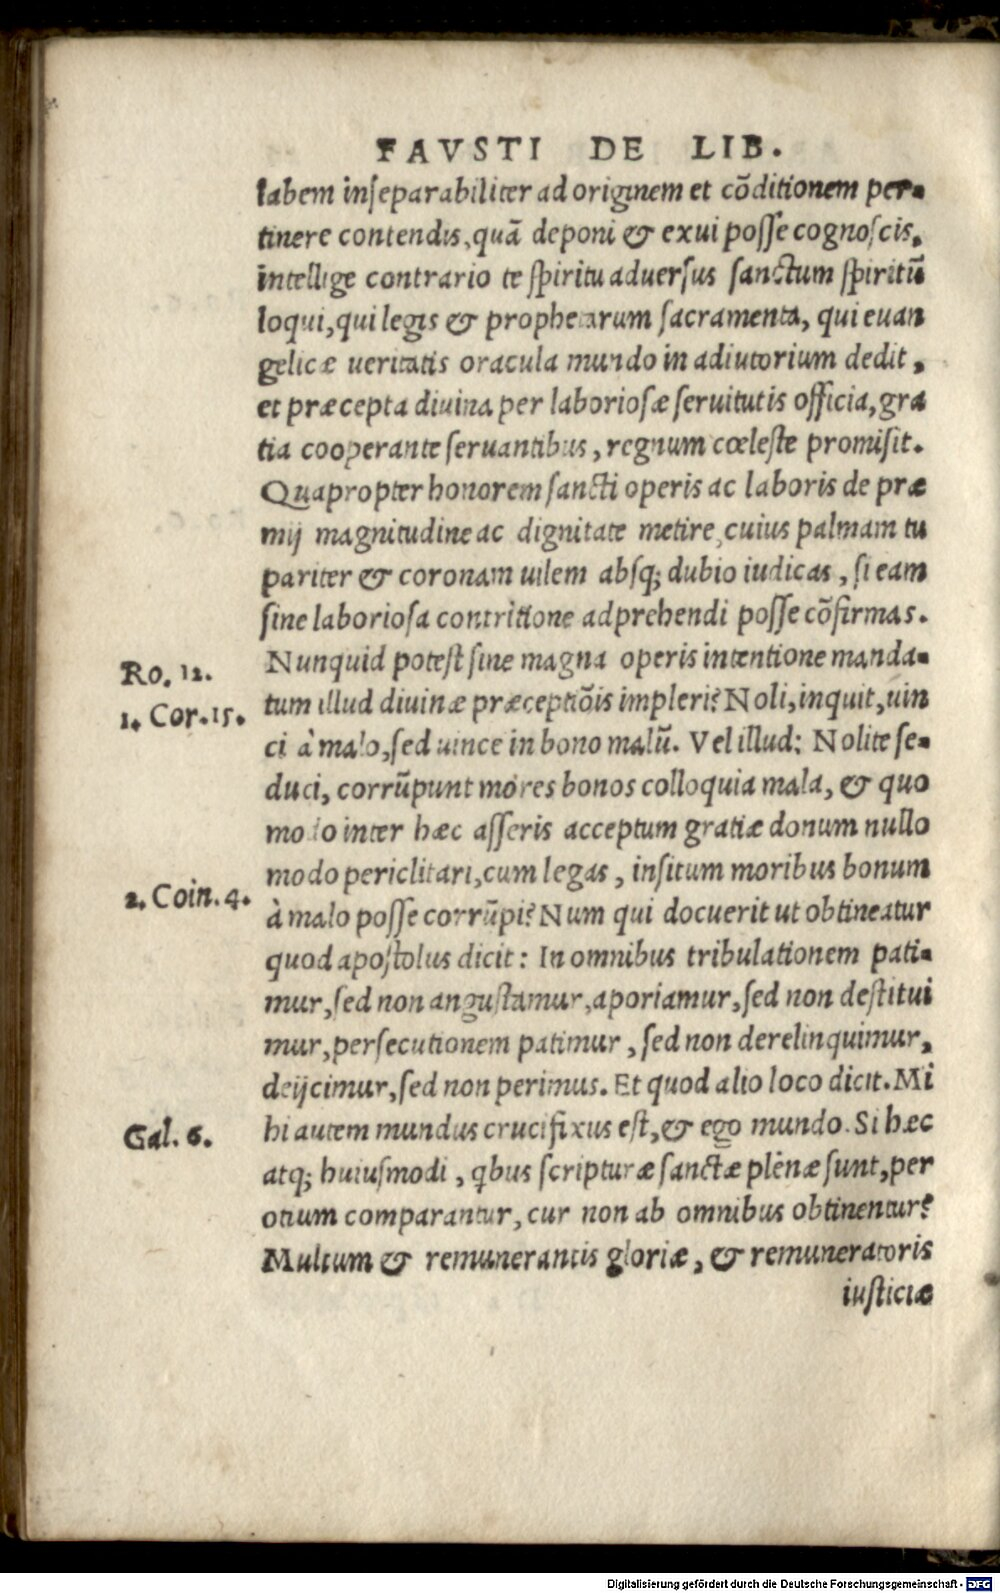 FAVSTI DE LIB.
labem inseparabiliter ad originem et cōditionem per-
tinere contendis, quā deponi & exui posse cognoscis,
intellige contrario te spiritu aduersus sanctum spiritū
loqui, qui legis & prophetarum sacramenta, qui euan
gelicæ veritatis oracula mundo in adiutorium dedit,
et præcepta diuina per laboriosæ seruitutis officia, gra
tia cooperante seruantibus, regnum cœleste promisit.
Quapropter honorem sancti operis ac laboris de præ
mij magnitudine ac dignitate metire, cuius palmam tu
pariter & coronam uilem absq; dubio iudicas, si eam
sine laboriosa contritione adprehendi posse cōfirmas.
Ro. 12. Nunquid potest sine magna operis intentione manda-
1. Cor. 15. tum illud diuinæ præceptiōis impleri? Noli, inquit, uin
ci à malo, sed uince in bono malū. Vel illud: Nolite se-
duci, corrūpunt mores bonos colloquia mala, & quo
modo inter hæc asseris acceptum gratiæ donum nullo
modo periclitari, cum legas, insitum moribus bonum
2. Coin. 4. à malo posse corrūpi? Num qui docuerit ut obtineatur
quod apostolus dicit: In omnibus tribulationem pati-
mur, sed non angustamur, aporiamur, sed non destitui
mur, persecutionem patimur, sed non derelinquimur,
deijcimur, sed non perimus. Et quod alio loco dicit. Mi
Gal. 6. hi autem mundus crucifixus est, & ego mundo. Si hæc
atq; huiusmodi, qbus scripturæ sanctæ plenæ sunt, per
otium comparantur, cur non ab omnibus obtinentur?
Multum & remunerantis gloriæ, & remuneratoris
iusticiæ
Digitalisierung gefördert durch die Deutsche Forschungsgemeinschaft - DFG